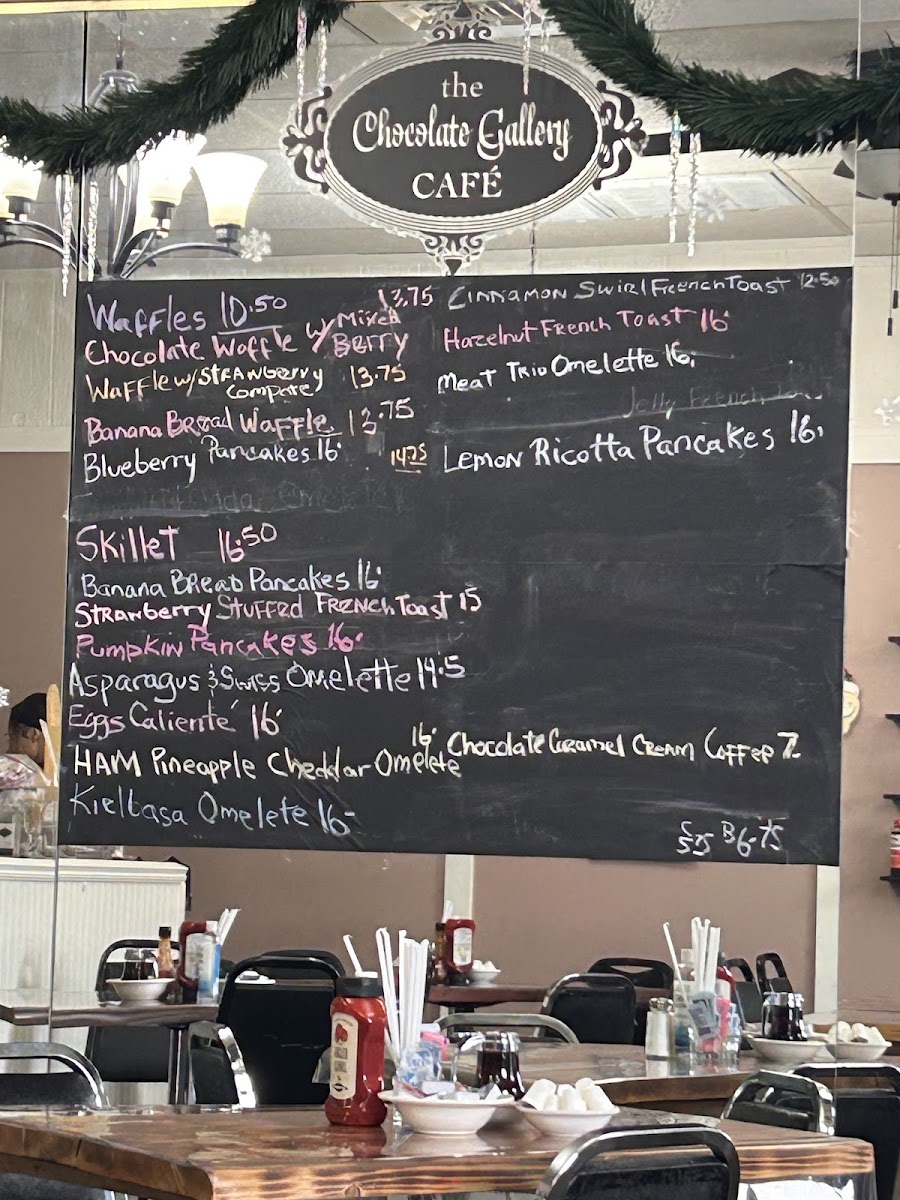 the
Chocolate Gallery
CAFÉ
Waffles 10.50
Chocolate Waffle w/ Mixed Berry 13.75
Waffle w/ Strawberry Compote 13.75
Banana Bread Waffle 13.75
Blueberry Pancakes 16.
14.75
Skillet 16.50
Banana Bread Pancakes 16.
Strawberry Stuffed French Toast 15
Pumpkin Pancakes 16.
Asparagus & Swiss Omelette 14.5
Eggs Calienté 16.
HAM Pineapple Cheddar Omelete 16.
Kielbasa Omelete 16-
Cinnamon Swirl French Toast 12.50
Hazelnut French Toast 16.
Meat Trio Omelette 16.
Jolly French
Lemon Ricotta Pancakes 16.
Chocolate Caramel Cream Coffee 7.
S 5.75 B 6.75